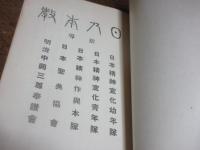 日乃本教
日本精神宣化幼年隊
日本精神宣化青年隊
日本精神作興本隊
日本聖典協會
明治中興三尊奉讃會